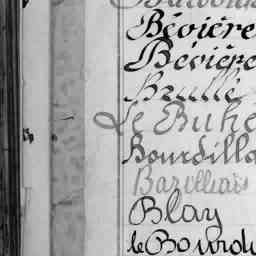 Bévière
Bévière
Brullé
Le Buhe
Bourdilla
Barilliais
Blay
le Bourdu